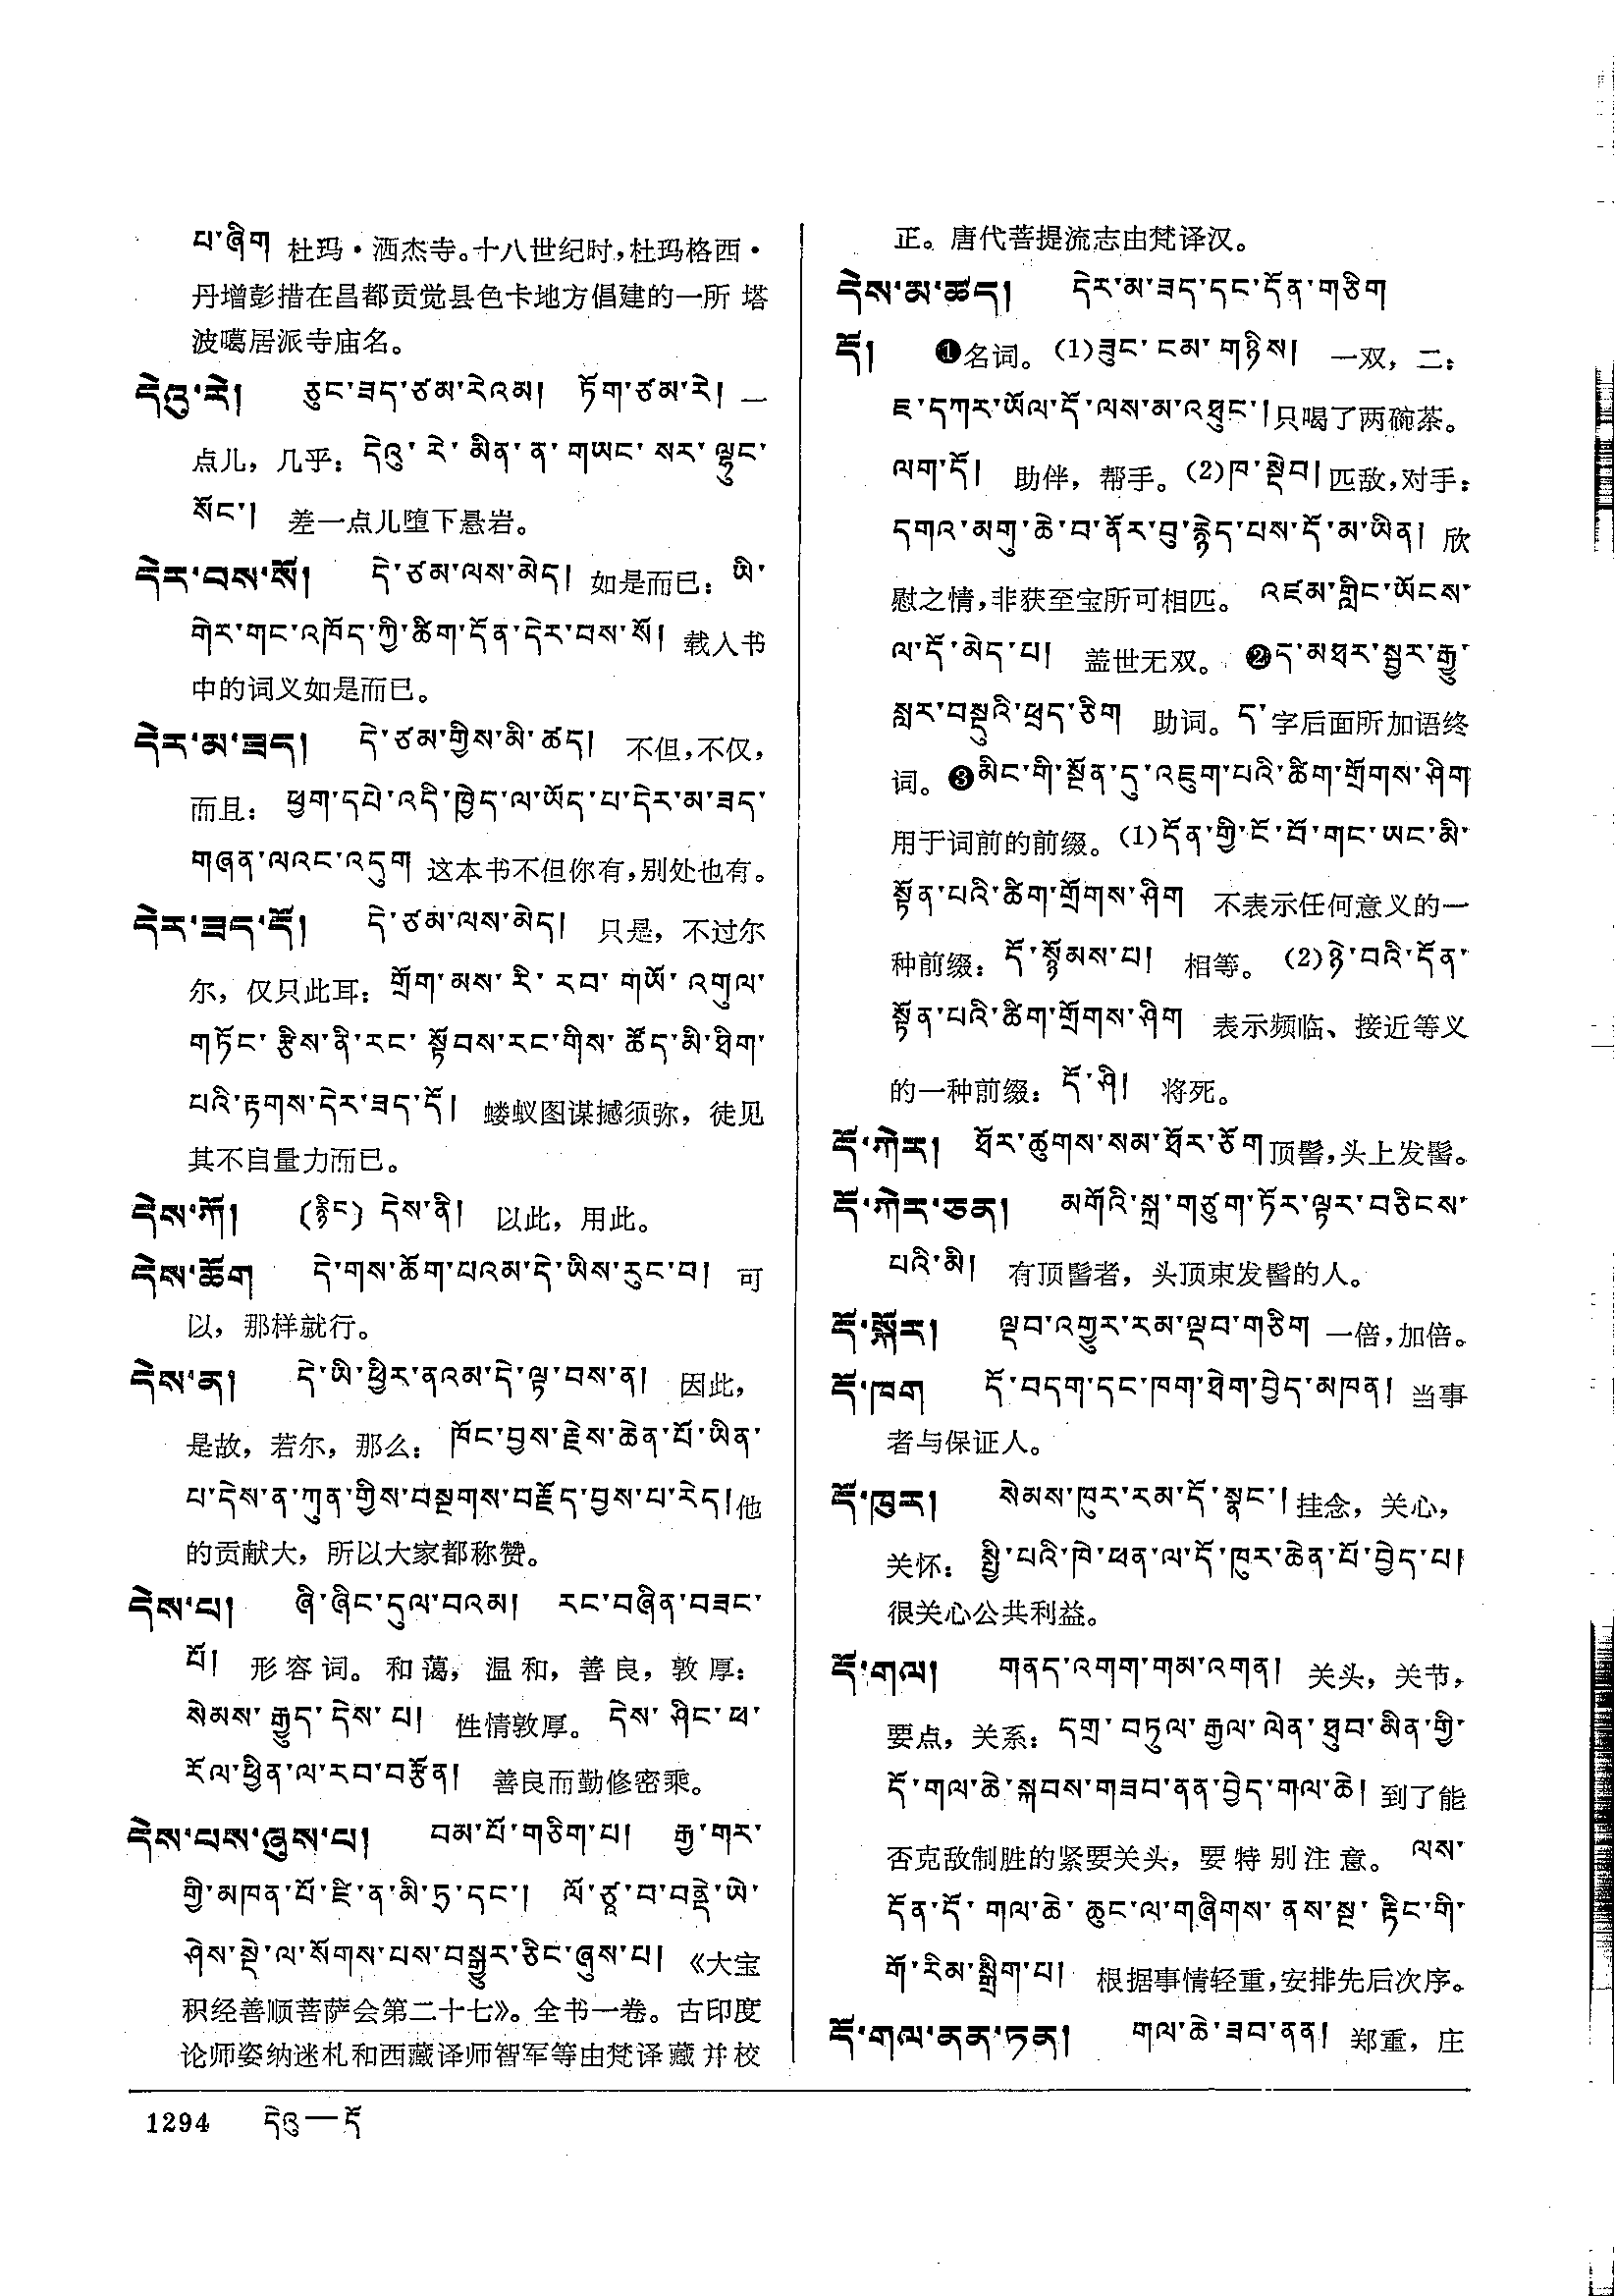 པ་ཞིག 杜玛·洒杰寺。十八世纪时,杜玛格西·
丹增彭措在昌都贡觉县色卡地方倡建的一所塔
波噶居派寺庙名。
དེའུ་རེ། ཅུང་ཟད་ཙམ་རེའམ། ཏོག་ཙམ་རེ། 一
点儿，几乎：དེའུ་རེ་མིན་ན་གཡང་སར་ལྷུང་
སོང་། 差一点儿堕下悬岩。
དེར་བས་སོ། དེ་ཙམ་ལས་མེད། 如是而已：ཡི་
གེར་གང་འཁོད་ཀྱི་ཚིག་དོན་དེར་བས་སོ། 载入书
中的词义如是而已。
དེར་མ་ཟད། དེ་ཙམ་གྱིས་མི་ཚད། 不但,不仅,
而且：ཕྱག་དཔེ་འདི་ཁྱེད་ལ་ཡོད་པ་དེར་མ་ཟད་
གཞན་ལའང་འདུག 这本书不但你有,别处也有。
དེར་ཟད་དོ། དེ་ཙམ་ལས་མེད། 只是，不过尔
尔，仅只此耳：གྲོག་མས་རི་རབ་གཡོ་འགུལ་
གཏོང་རྩིས་ནི་རང་སྟོབས་རང་གིས་ཚོད་མི་ཐིག་
པའི་རྟགས་དེར་ཟད་དོ། 蝼蚁图谋撼须弥，徒见
其不自量力而已。
དེས་ཀོ། (རྙིང) དེས་ནི། 以此，用此。
དེས་ཆོག དེ་གས་ཆོག་པའམ་དེ་ཡིས་རུང་བ། 可
以，那样就行。
དེས་ན། དེ་ཡི་ཕྱིར་ནའམ་དེ་ལྟ་བས་ན། 因此，
是故，若尔，那么：ཁོང་བྱས་རྗེས་ཆེན་པོ་ཡིན་
པ་དེས་ན་ཀུན་གྱིས་བསྔགས་བརྗོད་བྱས་པ་རེད།他
的贡献大，所以大家都称赞。
དེས་པ། ཞི་ཞིང་དུལ་བའམ། རང་བཞིན་བཟང་
པོ། 形容词。和蔼，温和，善良，敦厚：
སེམས་རྒྱུད་དེས་པ། 性情敦厚。དེས་ཤིང་ཕ་
རོལ་ཕྱིན་ལ་རབ་བརྩོན། 善良而勤修密乘。
དེས་པས་ཞུས་པ། བམ་པོ་གཅིག་པ། རྒྱ་གར་
གྱི་མཁན་པོ་ཛི་ན་མི་ཏྲ་དང་། ལོ་ཙཱ་བ་བནྡེ་ཡེ་
ཤེས་སྡེ་ལ་སོགས་པས་བསྒྱུར་ཅིང་ཞུས་པ། 《大宝
积经善顺菩萨会第二十七》。全书一卷。古印度
论师姿纳迷札和西藏译师智军等由梵译藏并校
正。唐代菩提流志由梵译汉。
དེས་མ་ཚད། དེར་མ་ཟད་དང་དོན་གཅིག
དོ། ❶名词。(1)ཟུང་ངམ་གཉིས། 一双，二：
ཇ་དཀར་ཡོལ་དོ་ལས་མ་འཐུང་།只喝了两碗茶。
ལག་དོ། 助伴，帮手。(2)ཁ་སྡེབ།匹敌,对手：
དགའ་མགུ་ཆེ་བ་ནོར་བུ་རྙེད་པས་དོ་མ་ཡིན། 欣
慰之情,非获至宝所可相匹。འཛམ་གླིང་ཡོངས་
ལ་དོ་མེད་པ། 盖世无双。❷ད་མཐར་སྦྱར་རྒྱུ་
སླར་བསྡུའི་ཕྲད་ཅིག 助词。ད་字后面所加语终
词。❸མིང་གི་སྔོན་དུ་འཇུག་པའི་ཚིག་གྲོགས་ཤིག
用于词前的前缀。(1)དོན་གྱི་ངོ་བོ་གང་ཡང་མི་
སྟོན་པའི་ཚིག་གྲོགས་ཤིག 不表示任何意义的一
种前缀：དོ་སྙོམས་པ། 相等。(2)ཉེ་བའི་དོན་
སྟོན་པའི་ཚིག་གྲོགས་ཤིག 表示频临、接近等义
的一种前缀：དོ་ཤི། 将死。
དོ་ཀེར། ཐོར་ཚུགས་སམ་ཐོར་ཅོག顶髻,头上发髻。
དོ་ཀེར་ཅན། མགོའི་སྐྲ་གཙུག་ཏོར་ལྟར་བཅིངས་
པའི་མི། 有顶髻者，头顶束发髻的人。
དོ་སྐོར། ལྡབ་འགྱུར་རམ་ལྡབ་གཅིག 一倍,加倍。
དོ་ཁག དོ་བདག་དང་ཁག་ཐེག་བྱེད་མཁན། 当事
者与保证人。
དོ་ཁུར། སེམས་ཁུར་རམ་དོ་སྣང་།挂念，关心，
关怀：སྤྱི་པའི་ཁེ་ཕན་ལ་དོ་ཁུར་ཆེན་པོ་བྱེད་པ།
很关心公共利益。
དོ་གལ། གནད་འགག་གམ་འགན། 关头，关节，
要点，关系：དགྲ་བཏུལ་རྒྱལ་ལེན་ཐུབ་མིན་གྱི་
དོ་གལ་ཆེ་སྐབས་གཟབ་ནན་བྱེད་གལ་ཆེ། 到了能
否克敌制胜的紧要关头，要特别注意。ལས་
དོན་དོ་གལ་ཆེ་ཆུང་ལ་གཞིགས་ནས་སྔ་རྟིང་གི་
གོ་རིམ་སྒྲིག་པ། 根据事情轻重,安排先后次序。
དོ་གལ་ནན་ཏན། གལ་ཆེ་ཟབ་ནན། 郑重，庄
1294 དེའུ—དོ